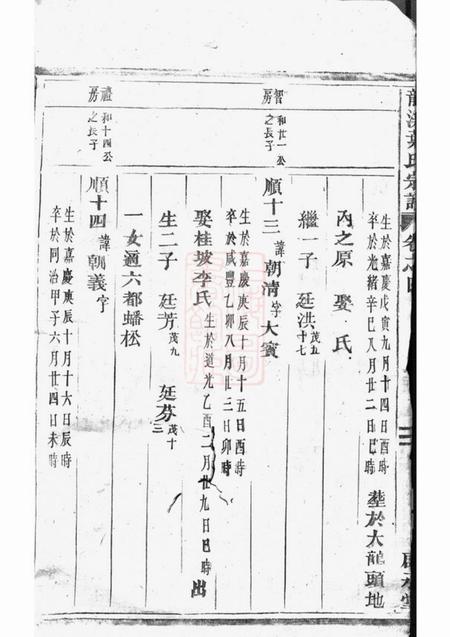 生於嘉慶戊寅九月十四日酉時
卒於光緒辛巳八月廿二日巳時
塟於大龍頭地
內之原 娶 氏
繼一子 廷洪 茂五十七
智房
和廿一公之長子
順十三 諱朝清字大賓
生於嘉慶庚辰十月十五日酉時
卒於咸豐乙卯八月廿三日卯時
娶桂坡李氏 生於道光乙酉二月廿九日巳時 出
生二子 廷芳 茂九 廷芬 茂十三
一女適六都蟠松
禮房
和十四公之長子
順十四 諱朝義字
生於嘉慶庚辰十月十六日辰時
卒於同治甲子六月廿四日未時